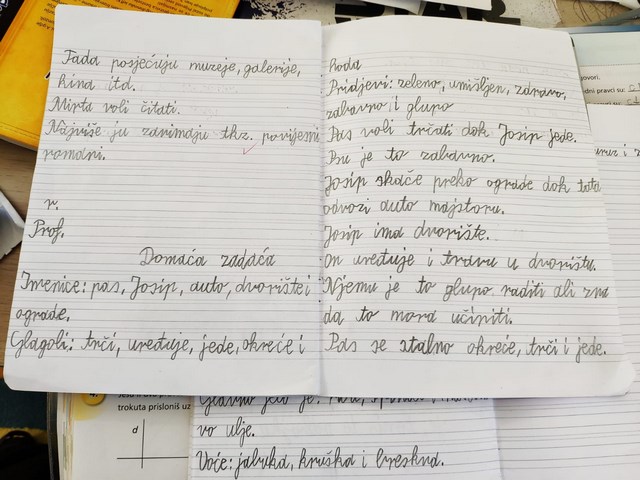 Tada posjećuju muzeje, galerije,
kina itd.
Mirta voli čitati.
Najviše ju zanimaju tkz. povijesni
romani.
r.
Prof.
Domaća zadaća
Imenice: pas, Josip, auto, dvorište i
ograde.
Glagoli: trči, uređuje, jede, okreće i
hoda
Pridjevi: zeleno, umišljen, zdravo,
zabavno i glupo
Pas voli trčati dok Josip jede.
Psu je to zabavno.
Josip skače preko ograde dok tata
odvozi auto majstoru.
Josip ima dvorište.
On uređuje i travu u dvorištu.
Njemu je to glupo raditi ali zna
da to mora učiniti.
Pas se stalno okreće, trči i jede.
govori.
dni pravci su:
trokuta prisloniš uz
d
Glavno jelo je:
vo ulje.
Voće: jabuka, kruška i breskva.